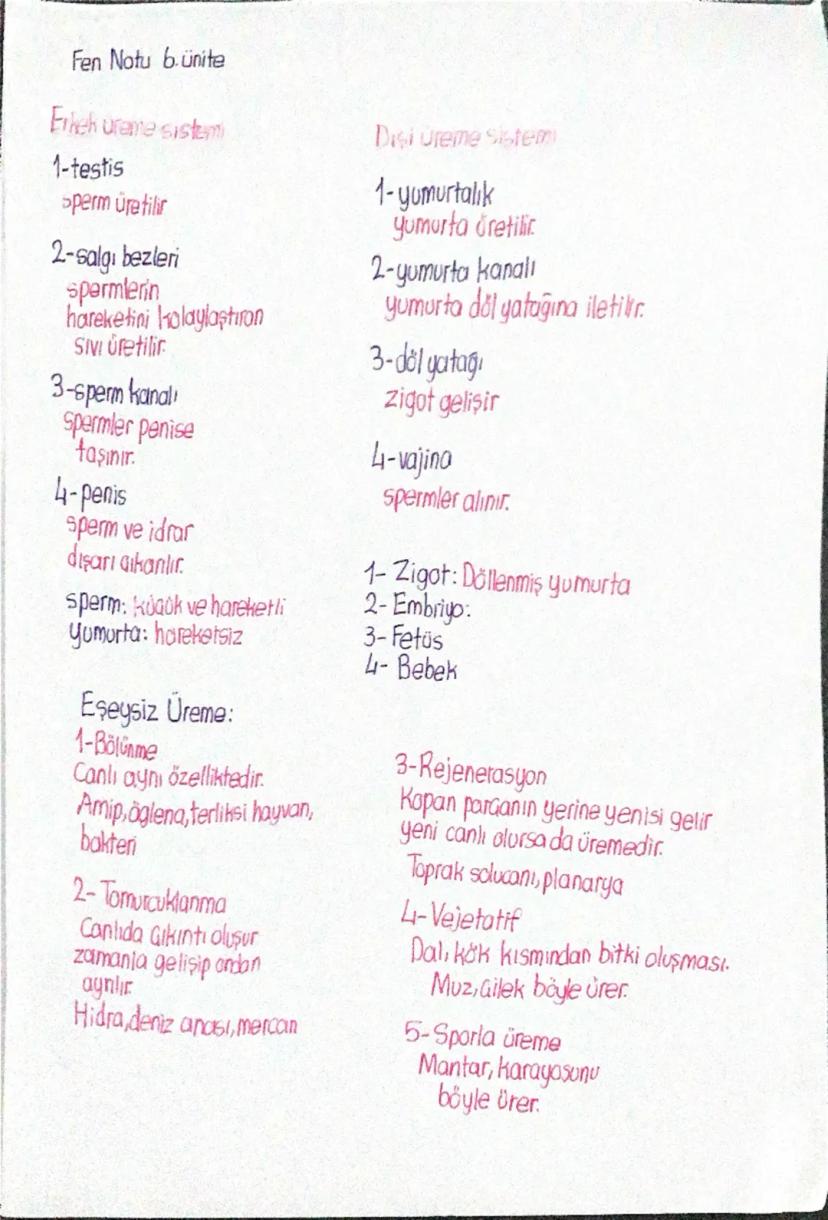 Fen Notu 6.ünite
Erkek üreme sistemi
1-testis
sperm üretilir
2-salgı bezleri
spermlerin
hareketini kolaylaştıran
sıvı üretilir.
3-sperm kanalı
spermler penise
taşınır.
4-penis
sperm ve idrar
dışarı çıkarılır.
sperm: küçük ve hareketli
Yumurta: hareketsiz
Dişi üreme sistemi
1-yumurtalık
yumurta üretilir.
2-yumurta kanalı
yumurta döl yatağına iletilir.
3-döl yatağı
zigot gelişir
4-vajina
spermler alınır.
1- Zigot: Döllenmiş yumurta
2- Embriyo:
3- Fetüs
4- Bebek
Eşeysiz Üreme:
1-Bölünme
Canlı aynı özelliktedir.
Amip, öglena, terliksi hayvan,
bakteri
2- Tomurcuklanma
Canlıda çıkıntı oluşur
zamanla gelişip ondan
ayrılır
Hidra, deniz anası, mercan
3-Rejenerasyon
Kopan parçanın yerine yenisi gelir
yeni canlı olursa da üremedir.
Toprak solucanı, planarya
4-Vejetatif
Dalı, kök kısmından bitki oluşması.
Muz, çilek böyle ürer.
5-Sporla üreme
Mantar, karayosunu
böyle ürer.